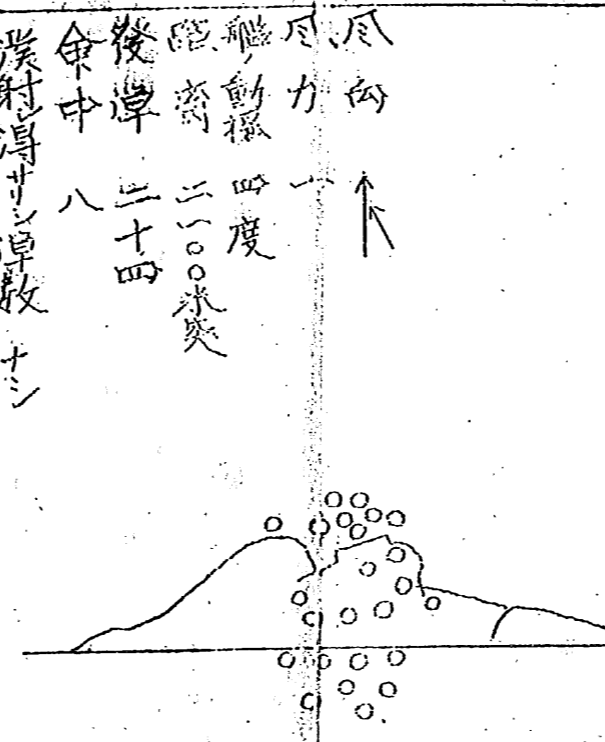 風向
風力 一
艦ノ動揺 四度
距離 二一〇〇米突
發彈 二十四
命中 八
發射シ得サリシ彈數 ナシ